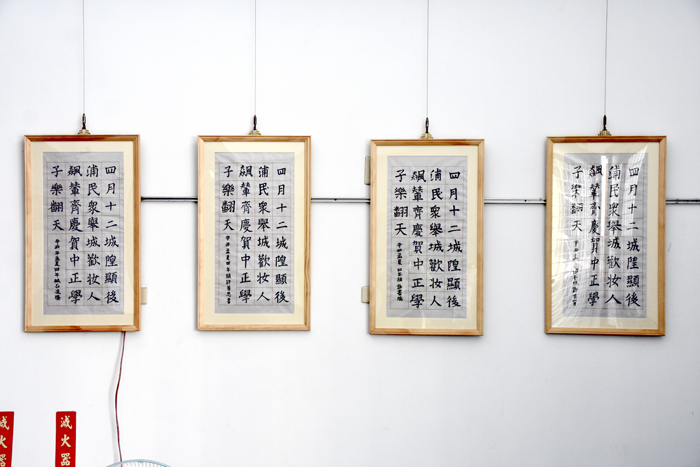 四月十二城隍顯後
浦民衆舉城歡妝人
飆輦齊慶賀中正學
子樂翻天
四月十二城隍顯後
浦民衆舉城歡妝人
飆輦齊慶賀中正學
子樂翻天
四月十二城隍顯後
浦民衆舉城歡妝人
飆輦齊慶賀中正學
子樂翻天
四月十二城隍顯後
浦民衆舉城歡妝人
飆輦齊慶賀中正學
子樂翻天
滅火器
滅火器